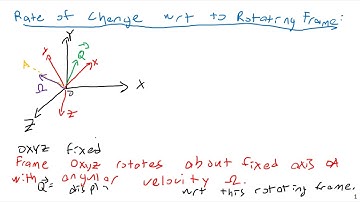 Rate of Change wrt to Rotating Frame:
Y
Y
Q
A
X
Ω
O
X
Z
Z
OXYZ fixed
Frame Oxyz rotates about fixed axis OA
with angular velocity Ω.
Q = wrt this rotating frame.